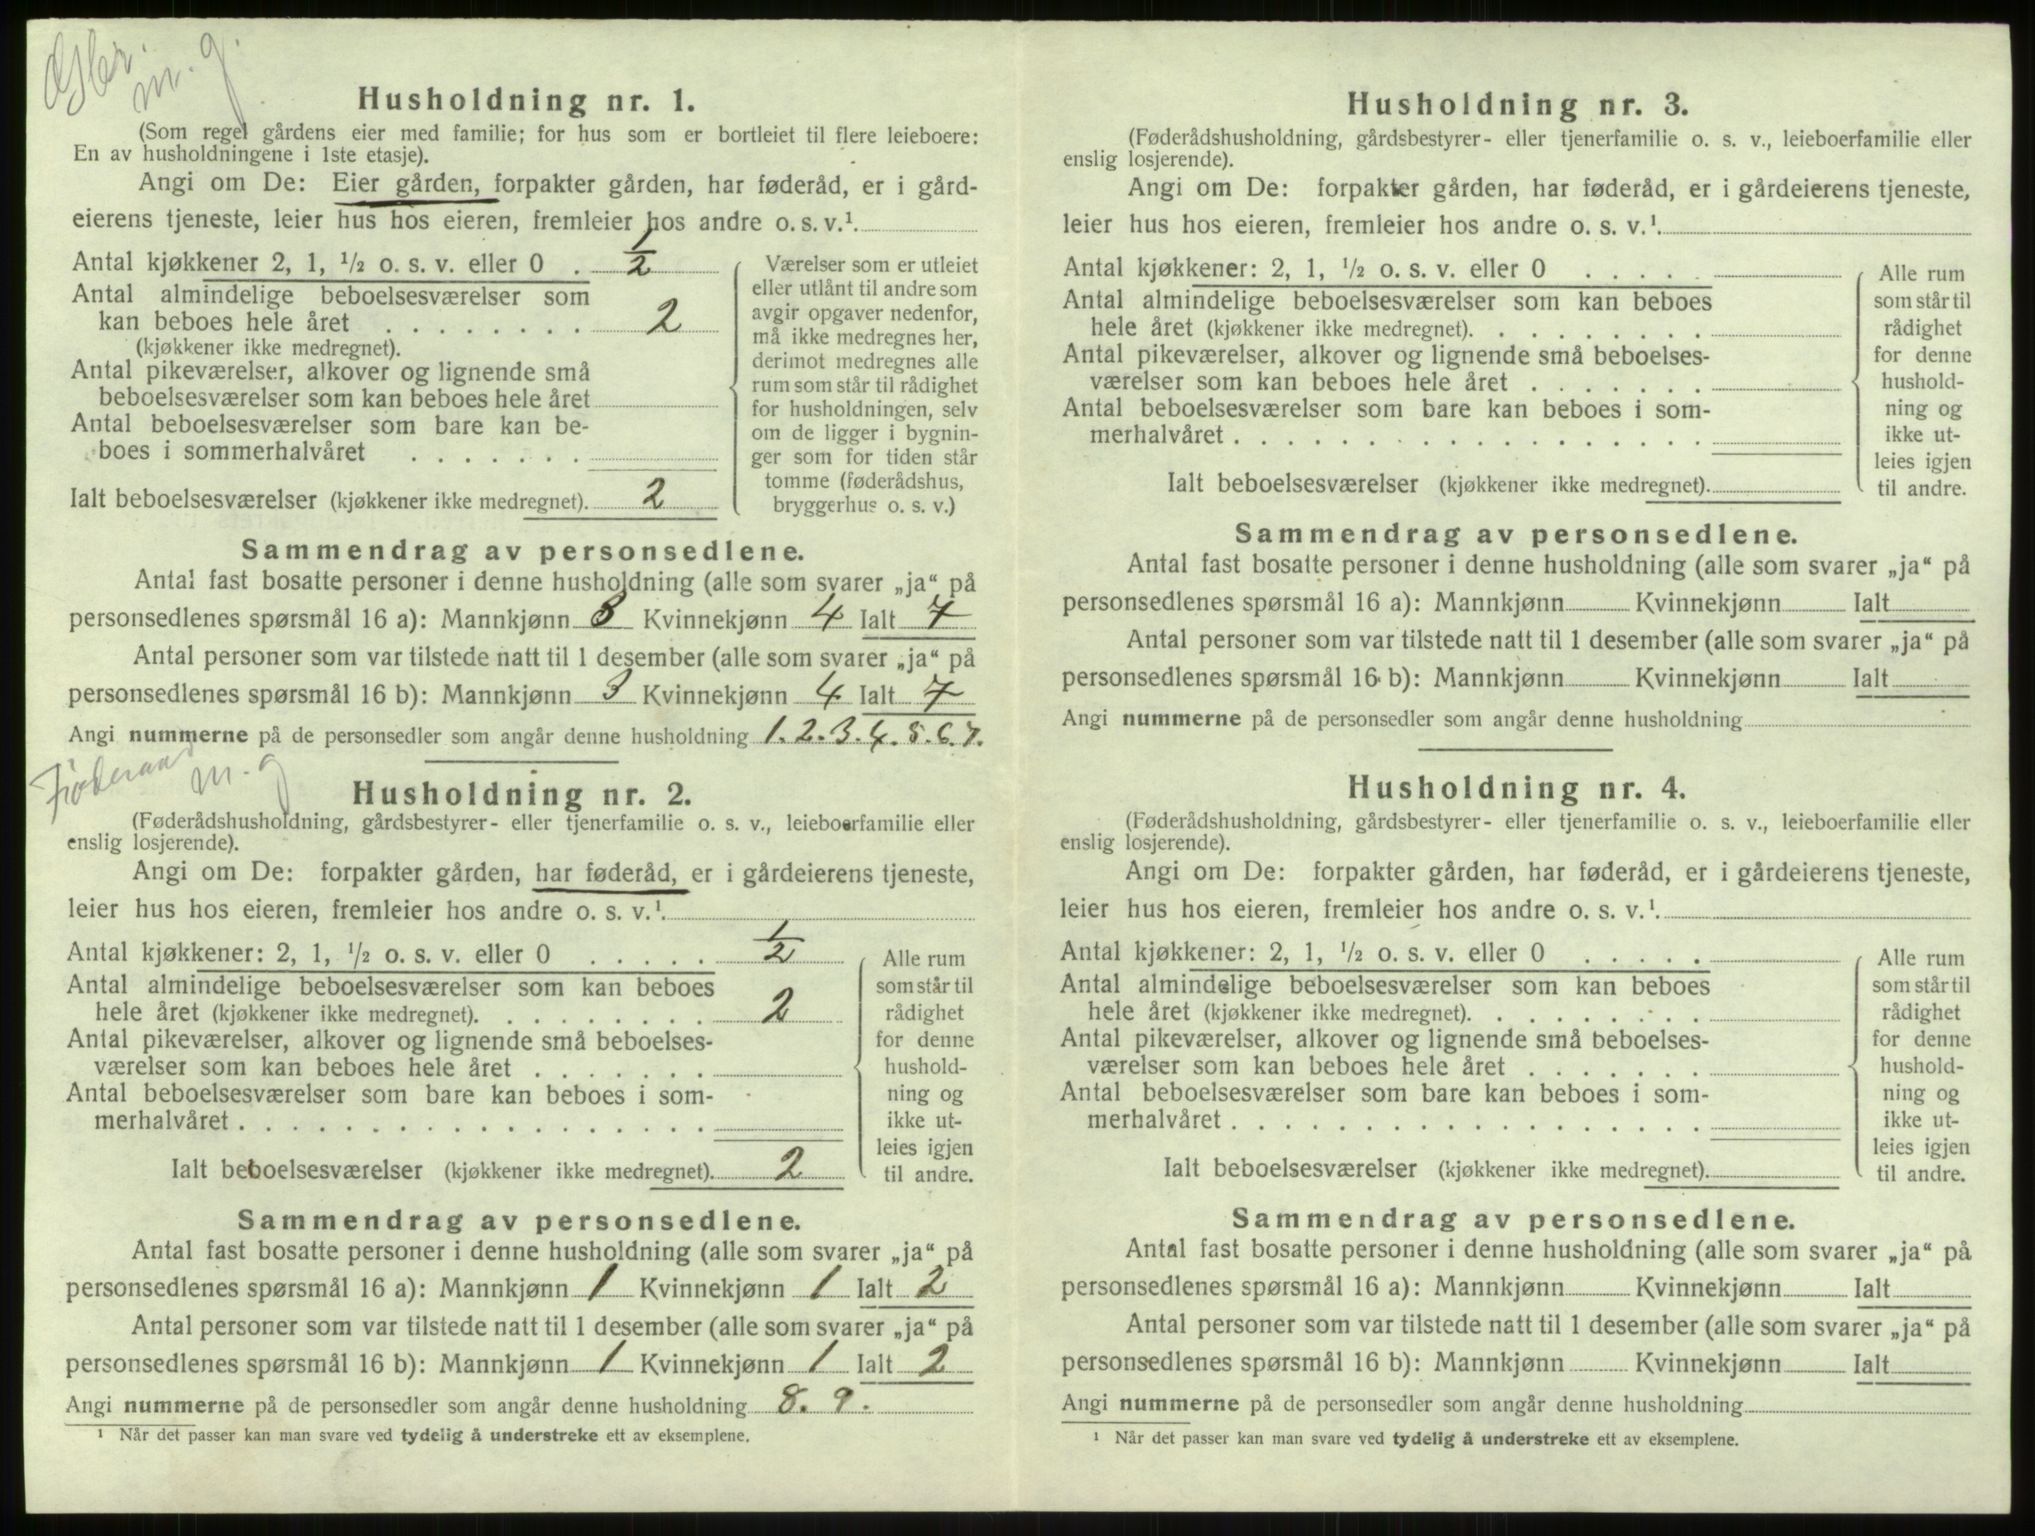 m. g.
Husholdning nr. 1.
(Som regel gårdens eier med familie; for hus som er bortleiet til flere leieboere:
En av husholdningene i 1ste etasje).
Angi om De: Eier gården, forpakter gården, har føderåd, er i gård-
eierens tjeneste, leier hus hos eieren, fremleier hos andre o. s. v.¹.
Antal kjøkkener 2, 1, ¹/₂ o. s. v. eller 0 . 1/2
Antal almindelige beboelsesværelser som
kan beboes hele året . . . . . . . . 2
(kjøkkener ikke medregnet).
Antal pikeværelser, alkover og lignende små
beboelsesværelser som kan beboes hele året
Antal beboelsesværelser som bare kan be-
boes i sommerhalvåret . . . . . . .
Ialt beboelsesværelser (kjøkkener ikke medregnet). 2
Værelser som er utleiet
eller utlånt til andre som
avgir opgaver nedenfor,
må ikke medregnes her,
derimot medregnes alle
rum som står til rådighet
for husholdningen, selv
om de ligger i bygnin-
ger som for tiden står
tomme (føderådshus,
bryggerhus o. s. v.)
Sammendrag av personsedlene.
Antal fast bosatte personer i denne husholdning (alle som svarer „ja“ på
personsedlenes spørsmål 16 a): Mannkjønn 3 Kvinnekjønn 4 Ialt 7
Antal personer som var tilstede natt til 1 desember (alle som svarer „ja“ på
personsedlenes spørsmål 16 b): Mannkjønn 3 Kvinnekjønn 4 Ialt 7
Angi nummerne på de personsedler som angår denne husholdning 1. 2. 3. 4. 5. 6. 7.
Føderaad m. g
Husholdning nr. 2.
(Føderådshusholdning, gårdsbestyrer- eller tjenerfamilie o. s. v., leieboerfamilie eller
enslig losjerende).
Angi om De: forpakter gården, har føderåd, er i gårdeierens tjeneste,
leier hus hos eieren, fremleier hos andre o. s. v.¹.
Antal kjøkkener: 2, 1, ¹/₂ o. s. v. eller 0 . . . . . 1/2
Antal almindelige beboelsesværelser som kan beboes
hele året (kjøkkener ikke medregnet). . . . . . . . . 2
Antal pikeværelser, alkover og lignende små beboelses-
værelser som kan beboes hele året . . . . . . .
Antal beboelsesværelser som bare kan beboes i som-
merhalvåret . . . . . . . . . . . . . . . . . .
Ialt beboelsesværelser (kjøkkener ikke medregnet). 2
Alle rum
som står til
rådighet
for denne
hushold-
ning og
ikke ut-
leies igjen
til andre.
Sammendrag av personsedlene.
Antal fast bosatte personer i denne husholdning (alle som svarer „ja“ på
personsedlenes spørsmål 16 a): Mannkjønn 1 Kvinnekjønn 1 Ialt 2
Antal personer som var tilstede natt til 1 desember (alle som svarer „ja“ på
personsedlenes spørsmål 16 b): Mannkjønn 1 Kvinnekjønn 1 Ialt 2
Angi nummerne på de personsedler som angår denne husholdning 8. 9.
¹ Når det passer kan man svare ved tydelig å understreke ett av eksemplene.
Husholdning nr. 3.
(Føderådshusholdning, gårdsbestyrer- eller tjenerfamilie o. s. v., leieboerfamilie eller
enslig losjerende).
Angi om De: forpakter gården, har føderåd, er i gårdeierens tjeneste,
leier hus hos eieren, fremleier hos andre o. s. v.¹.
Antal kjøkkener: 2, 1, ¹/₂ o. s. v. eller 0 . . . . .
Antal almindelige beboelsesværelser som kan beboes
hele året (kjøkkener ikke medregnet). . . . . . . . .
Antal pikeværelser, alkover og lignende små beboelses-
værelser som kan beboes hele året . . . . . . .
Antal beboelsesværelser som bare kan beboes i som-
merhalvåret . . . . . . . . . . . . . . . . . .
Ialt beboelsesværelser (kjøkkener ikke medregnet).
Alle rum
som står til
rådighet
for denne
hushold-
ning og
ikke ut-
leies igjen
til andre.
Sammendrag av personsedlene.
Antal fast bosatte personer i denne husholdning (alle som svarer „ja“ på
personsedlenes spørsmål 16 a): Mannkjønn Kvinnekjønn Ialt
Antal personer som var tilstede natt til 1 desember (alle som svarer „ja“ på
personsedlenes spørsmål 16 b): Mannkjønn Kvinnekjønn Ialt
Angi nummerne på de personsedler som angår denne husholdning
Husholdning nr. 4.
(Føderådshusholdning, gårdsbestyrer- eller tjenerfamilie o. s. v., leieboerfamilie eller
enslig losjerende).
Angi om De: forpakter gården, har føderåd, er i gårdeierens tjeneste,
leier hus hos eieren, fremleier hos andre o. s. v.¹.
Antal kjøkkener: 2, 1, ¹/₂ o. s. v. eller 0 . . . . .
Antal almindelige beboelsesværelser som kan beboes
hele året (kjøkkener ikke medregnet). . . . . . . . .
Antal pikeværelser, alkover og lignende små beboelses-
værelser som kan beboes hele året . . . . . . .
Antal beboelsesværelser som bare kan beboes i som-
merhalvåret . . . . . . . . . . . . . . . . . .
Ialt beboelsesværelser (kjøkkener ikke medregnet).
Alle rum
som står til
rådighet
for denne
hushold-
ning og
ikke ut-
leies igjen
til andre.
Sammendrag av personsedlene.
Antal fast bosatte personer i denne husholdning (alle som svarer „ja“ på
personsedlenes spørsmål 16 a): Mannkjønn Kvinnekjønn Ialt
Antal personer som var tilstede natt til 1 desember (alle som svarer „ja“ på
personsedlenes spørsmål 16 b): Mannkjønn Kvinnekjønn Ialt
Angi nummerne på de personsedler som angår denne husholdning
¹ Når det passer kan man svare ved tydelig å understreke ett av eksemplene.